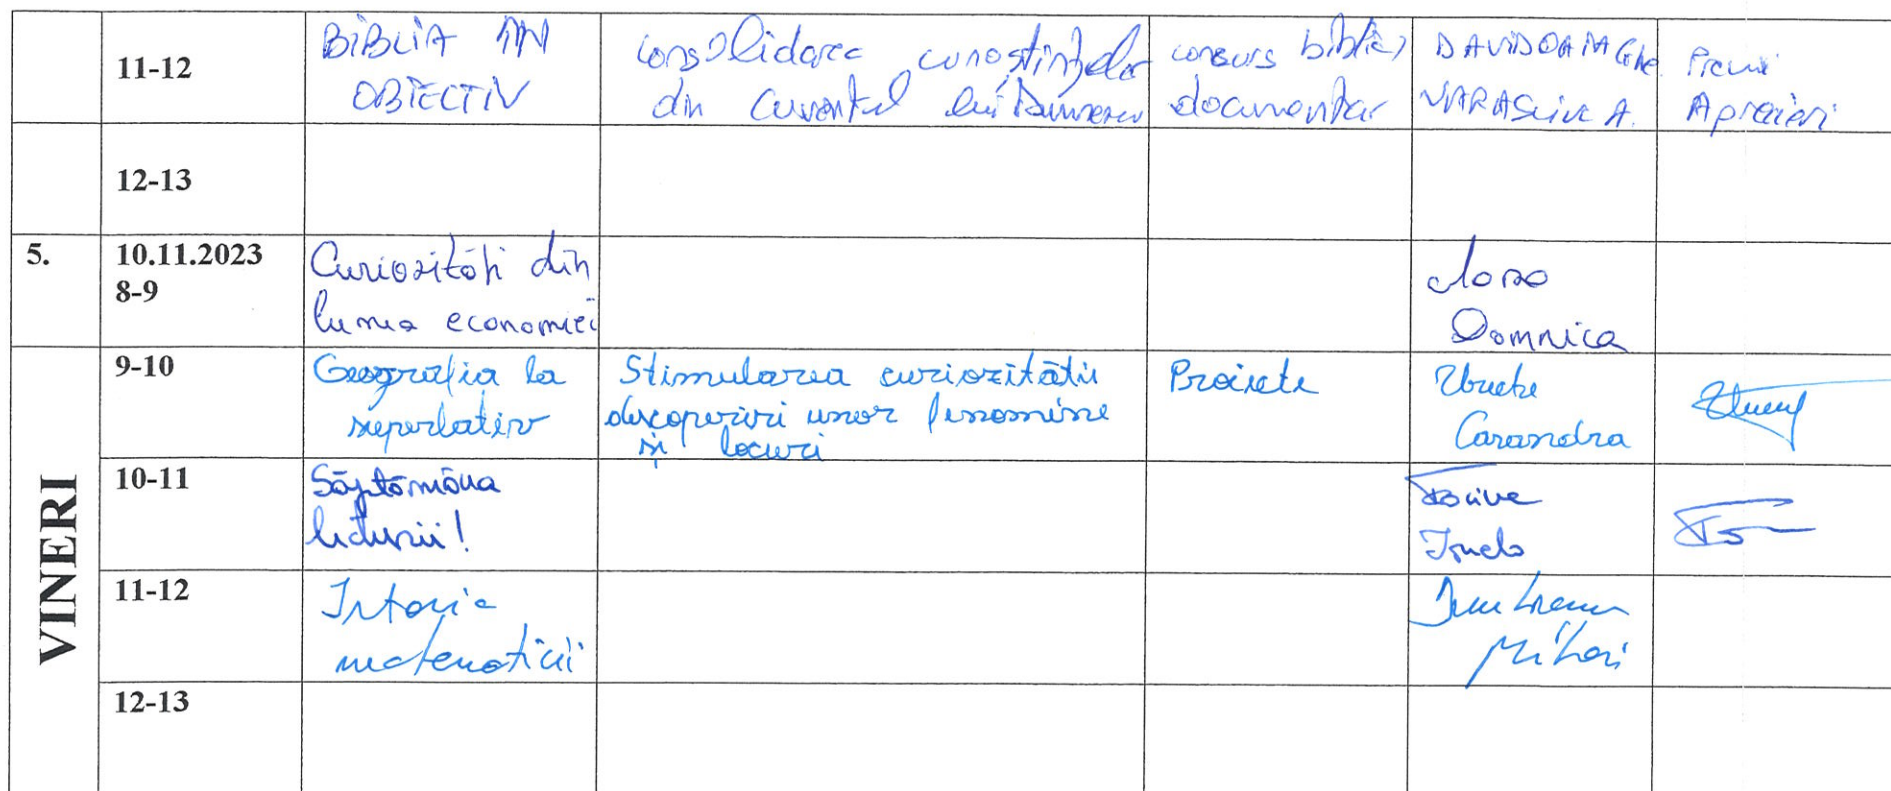 11-12
BIBLIA IN
OBIECTIV
consolidarea cunoștințelor
din Cuvantul lui Dumnezeu
concurs biblic,
documentar
Premii
Aprecieri
12-13
5.
10.11.2023
8-9
Curiozități din
lumea economiei
Domnica
VINERI
9-10
Geografia la
superlativ
Stimularea curiozității
descoperirii unor fenomene
și locuri
Proiecte
10-11
Săptămâna
lecturii!
11-12
Istoria
matematicii
Mihai
12-13